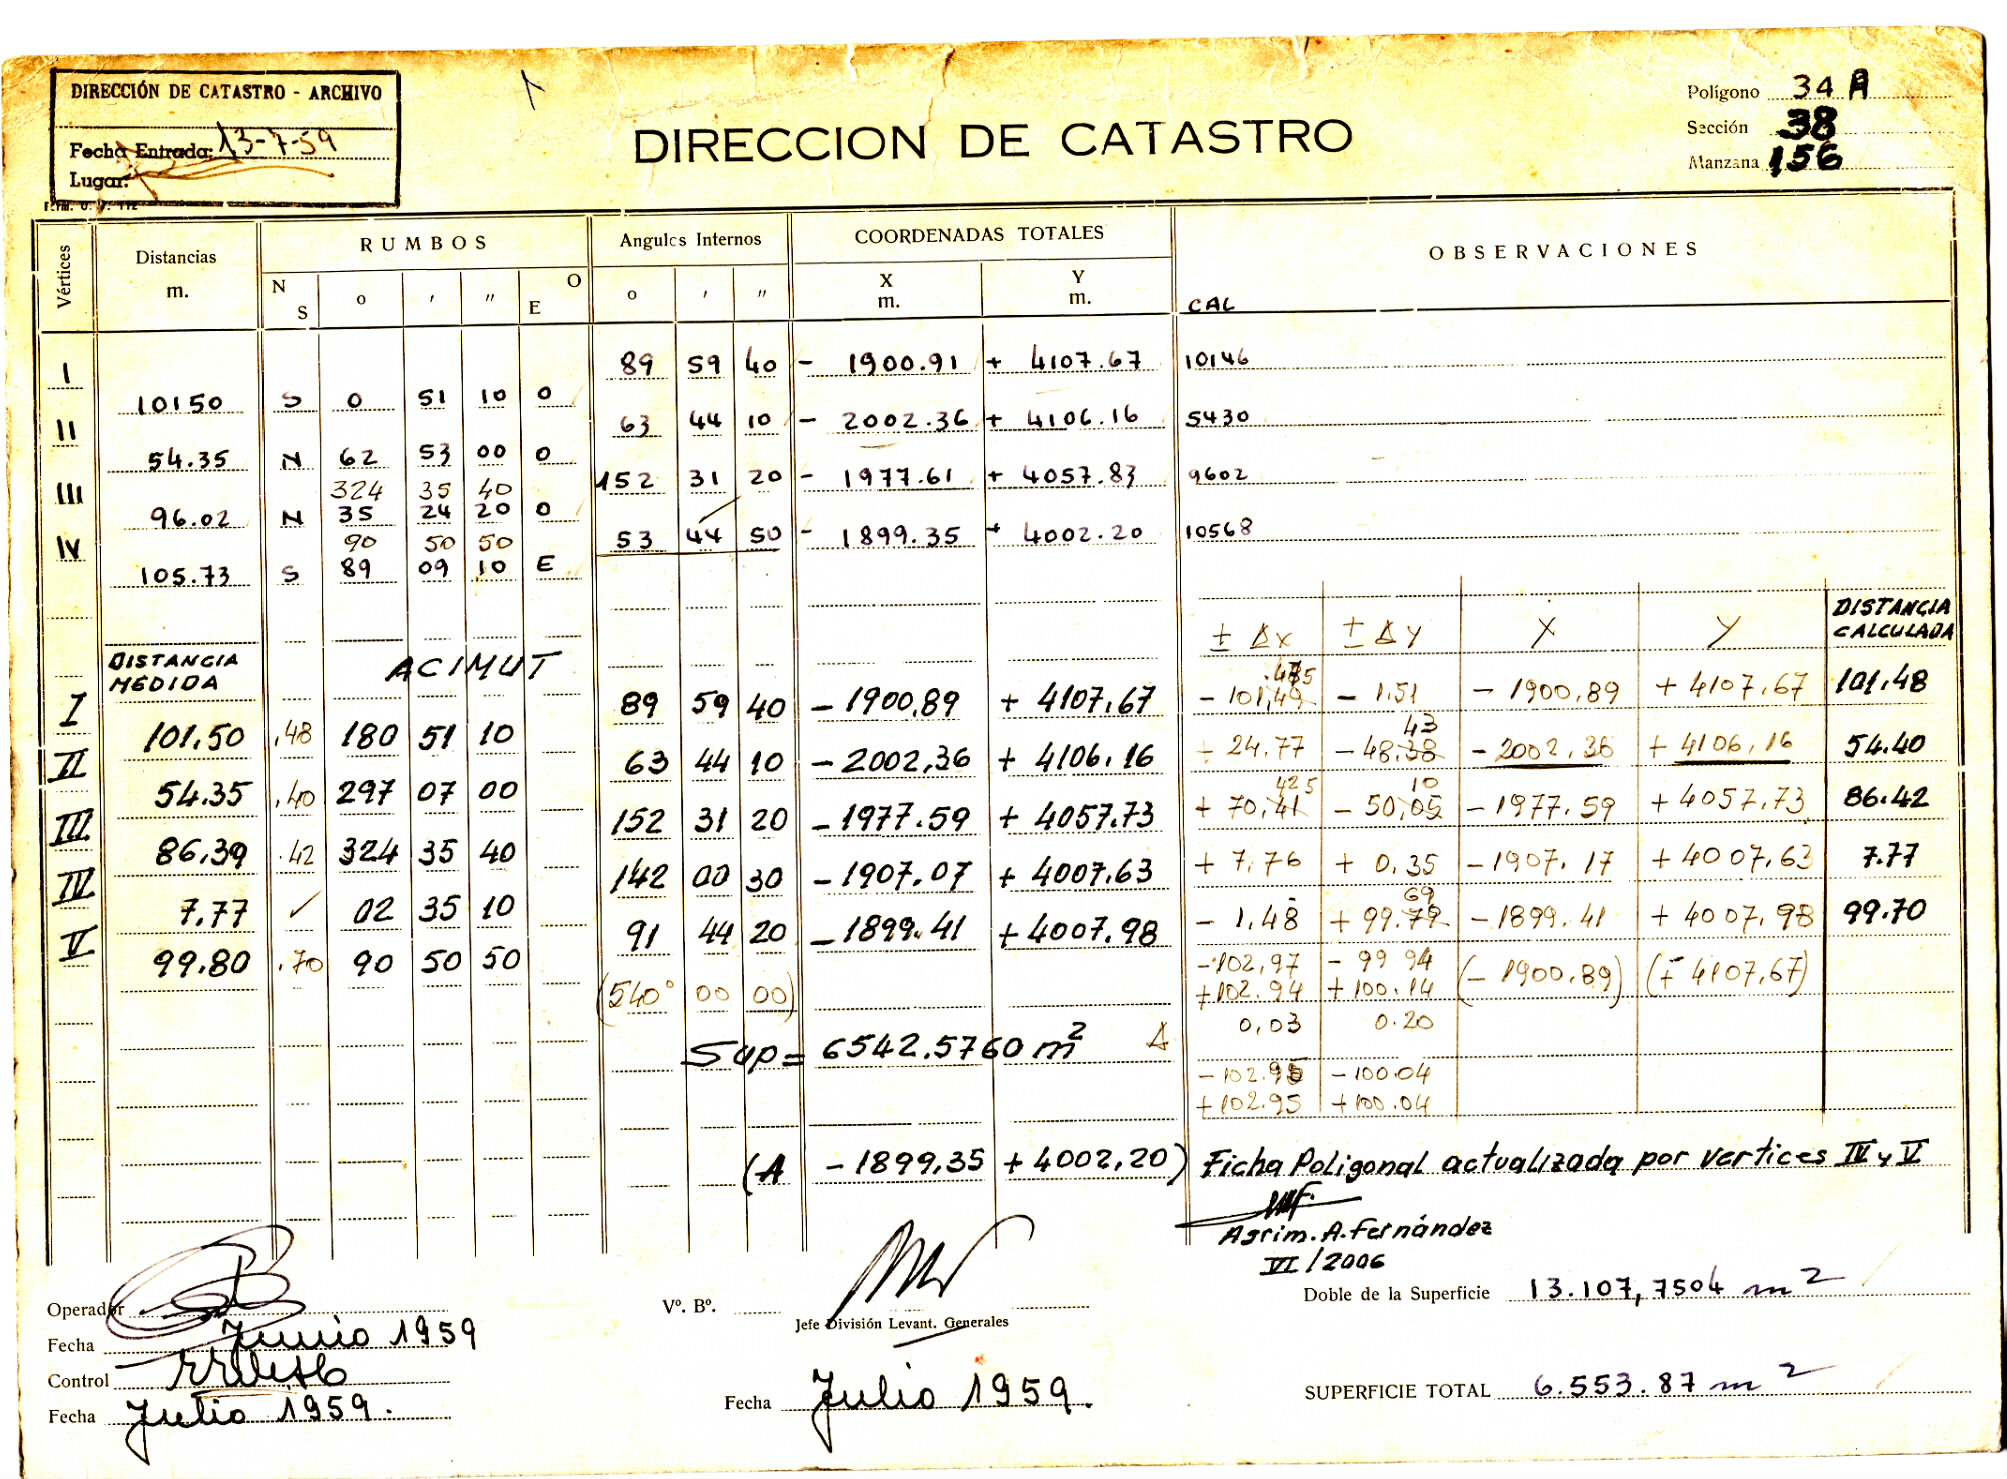 DIRECCIÓN DE CATASTRO - ARCHIVO
Fecha Entrada: 13-7-59
Lugar:
DIRECCION DE CATASTRO
Polígono 34 A
Sección 38
Manzana 156
Vértices Distancias m. RUMBOS N S o ' " O E Angulos Internos o ' " COORDENADAS TOTALES X m. Y m. OBSERVACIONES
CAL
I 89 59 40 - 1900.91 + 4107.67 10146
10150 S 0 51 10 O
II 63 44 10 - 2002.36 + 4106.16 5430
54.35 N 62 53 00 O
III 324 35 40 152 31 20 - 1977.61 + 4057.83 9602
96.02 N 35 24 20 O
IV 90 50 50 53 44 50 - 1899.35 + 4002.20 10568
105.73 S 89 09 10 E
± Δx ± Δy X Y DISTANCIA CALCULADA
DISTANCIA MEDIDA ACIMUT
I 89 59 40 - 1900,89 + 4107,67 - 101,49 - 1.51 - 1900,89 + 4107,67 101.48
101,50 .48 180 51 10
43
II 63 44 10 - 2002,36 + 4106.16 + 24.77 - 48.38 - 2002.36 + 4106,16 54.40
54.35 .40 297 07 00
425 10
III 152 31 20 - 1977.59 + 4057.73 + 70,41 - 50,05 - 1977.59 + 4057.73 86.42
86,39 .42 324 35 40
IV 142 00 30 - 1907.07 + 4007,63 + 7,76 + 0,35 - 1907,17 + 4007,63 7.77
7,77 ✓ 02 35 10
69
V 91 44 20 - 1899.41 + 4007,98 - 1,48 + 99.79 - 1899.41 + 4007,98 99.70
99.80 .70 90 50 50
(540° 00 00) -102,97 - 99 94 (- 1900,89) (+ 4107,67)
+102.94 +100.14
0,03 0.20
Sup = 6542.5760 m²
-102.95 -100.04
+102.95 +100.04
(A - 1899,35 + 4002,20) Ficha Poligonal actualizada por vertices IV y V
Agrim. A. Fernández
VI/2006
Operador
Fecha Junio 1959
Control
Fecha Julio 1959.
Vº. Bº.
Jefe División Levant. Generales
Fecha Julio 1959.
Doble de la Superficie 13.107,7504 m²
SUPERFICIE TOTAL 6.553.87 m²